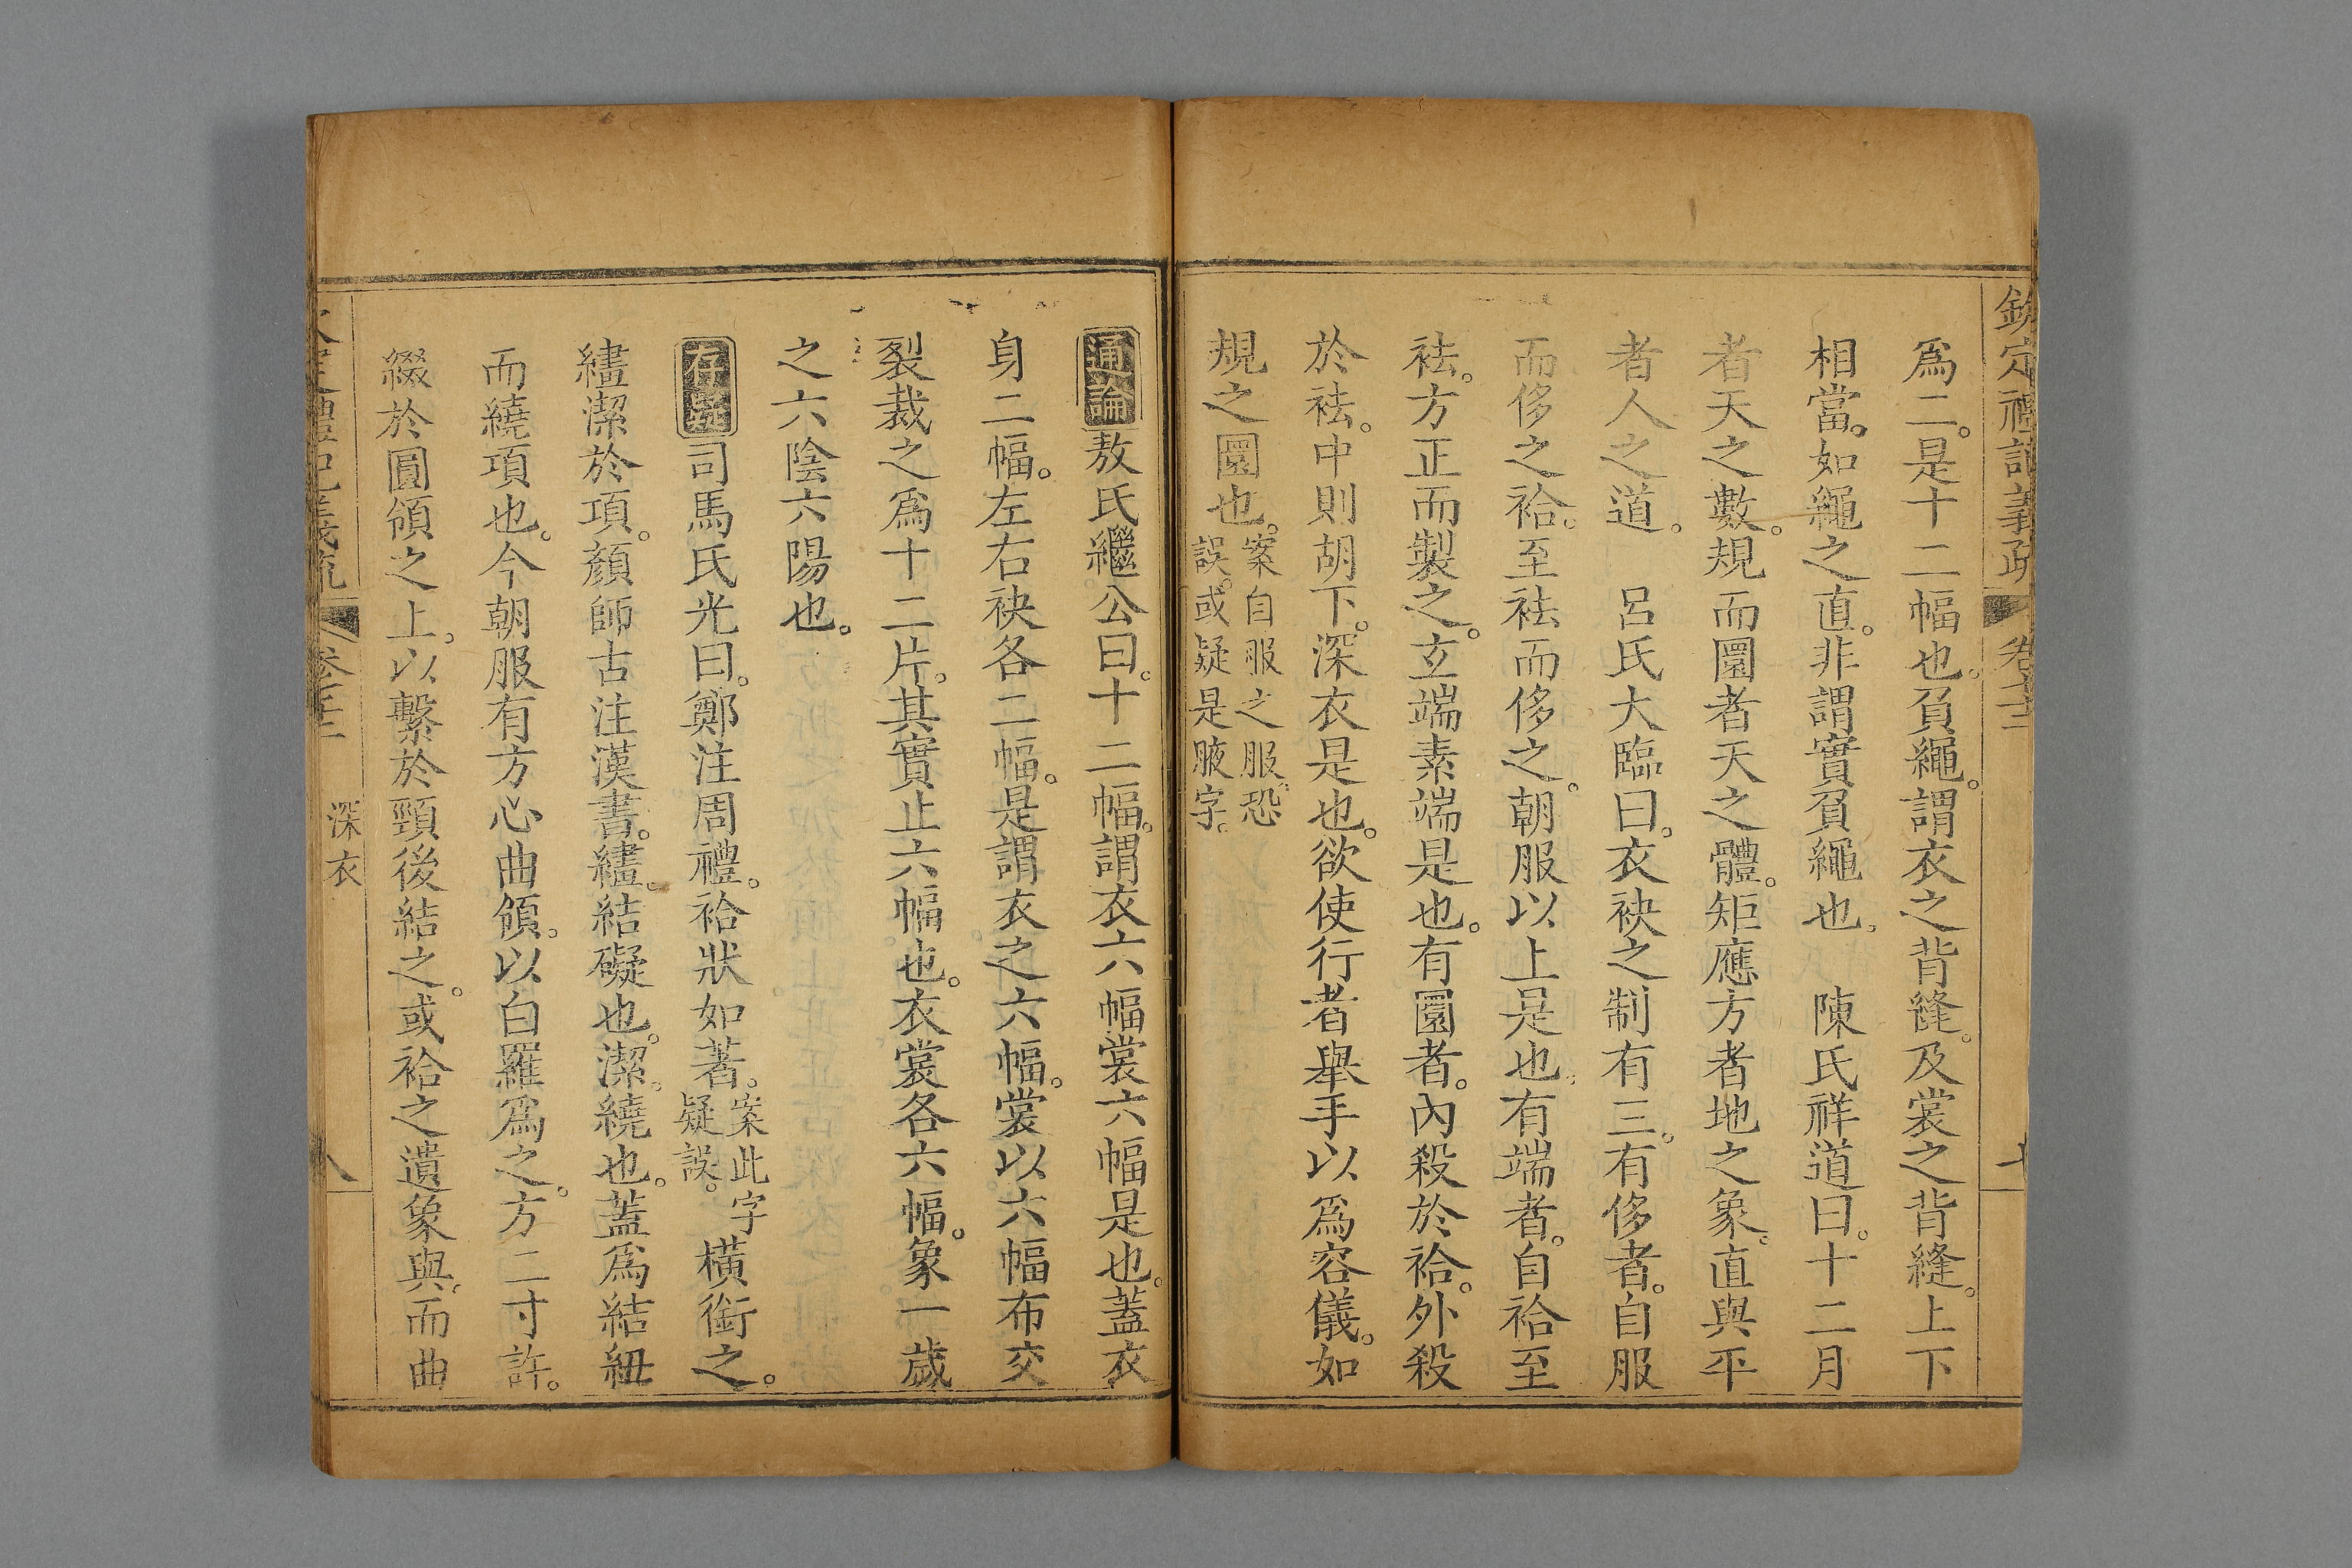 欽定禮記義疏 卷七十二
爲二。是十二幅也。負繩。謂衣之背縫。及裳之背縫。上下
相當。如繩之直。非謂實負繩也。 陳氏祥道曰。十二月
者天之數。規而圜者天之體。矩應方者地之象。直與平
者人之道。 呂氏大臨曰。衣袂之制有三。有侈者。自服
而侈之袷。至袪而侈之。朝服以上是也。有端者。自袷至
袪。方正而製之。玄端素端是也。有圜者。內殺於袷。外殺
於袪。中則胡下。深衣是也。欲使行者舉手以爲容儀。如
規之圜也。案自服之服。恐
誤。或疑是腋字。
通論 敖氏繼公曰。十二幅。謂衣六幅裳六幅是也。蓋衣
身二幅。左右袂各二幅。是謂衣之六幅。裳以六幅布交
裂裁之爲十二片。其實止六幅也。衣裳各六幅。象一歲
之六陰六陽也。
存疑 司馬氏光曰。鄭注周禮。袷狀如著。案此字
疑誤。橫銜之。
繣潔於項。顏師古注漢書。繣。結礙也。潔。繞也。蓋爲結紐
而繞項也。今朝服有方心曲領。以白羅爲之。方二寸許。
綴於圓領之上。以繫於頸後結之。或袷之遺象與。而曲
禮記義疏 深衣 八